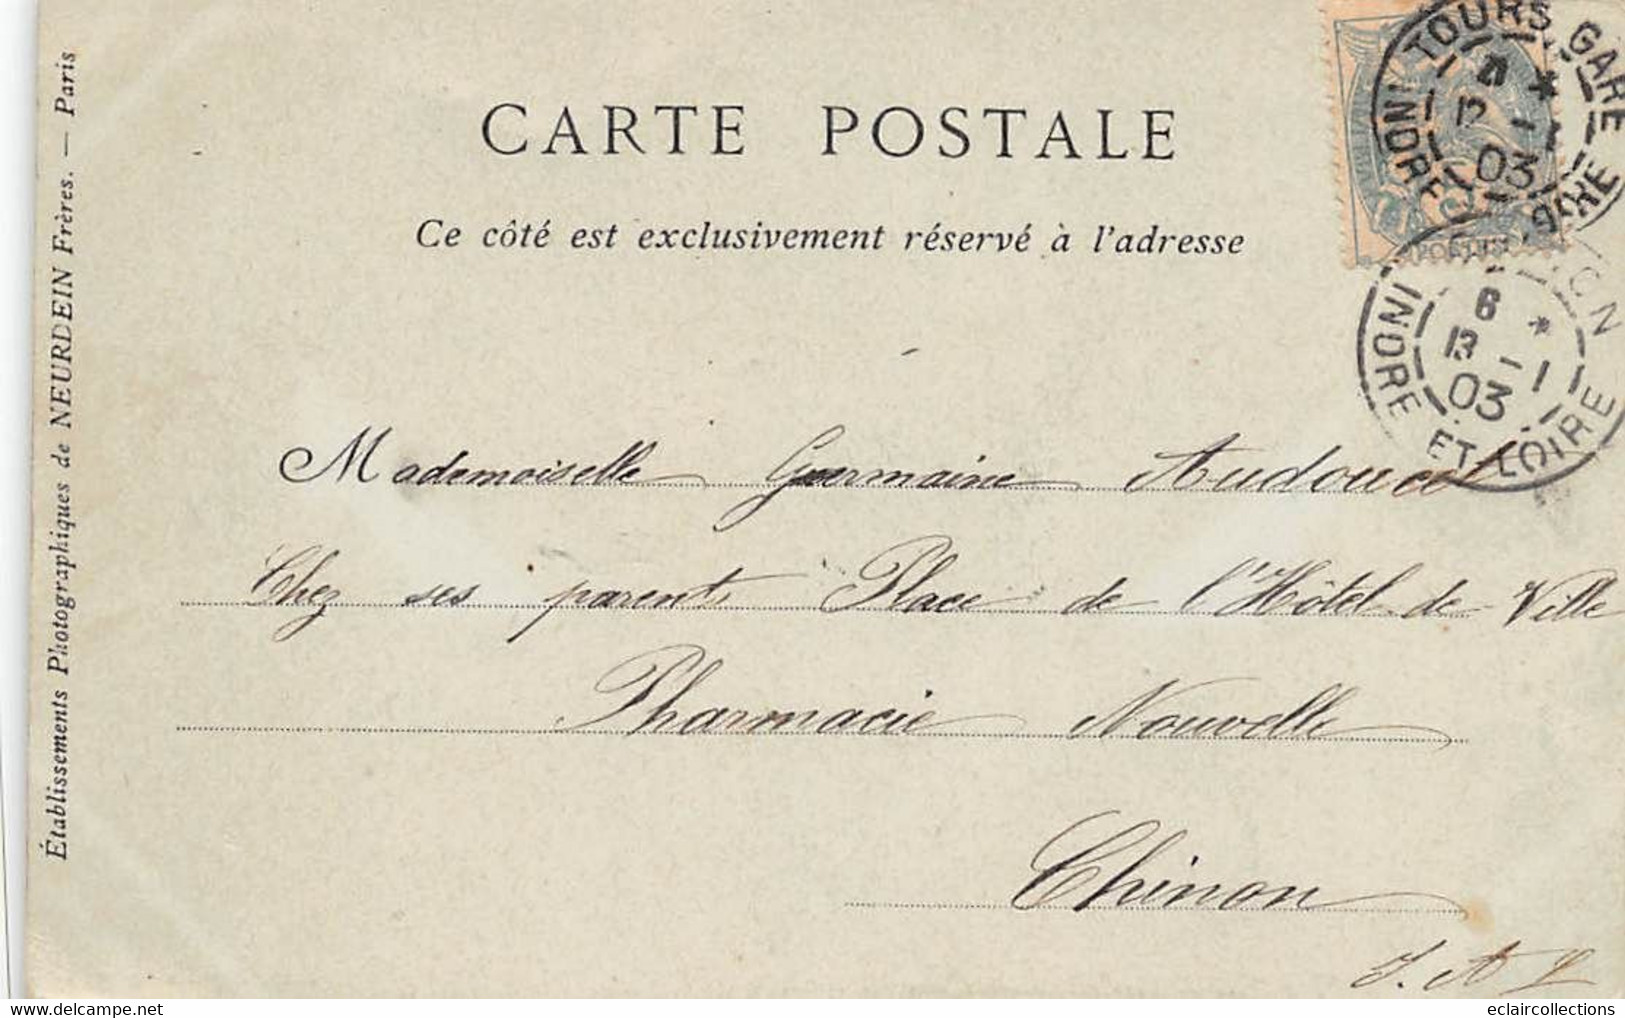 CARTE POSTALE
Ce côté est exclusivement réservé à l'adresse
Établissements Photographiques de NEURDEIN Frères. — Paris
TOURS GARE
12 - 1
03
INDRE LOIRE
POSTES
6 *
13 - 1
03
INDRE ET LOIRE
Mademoiselle Germaine Audoucet
Chez ses parents Place de l'Hôtel-de-Ville
Pharmacie Nouvelle
Chinon
I. et L
delcampe.net
eclaircollections